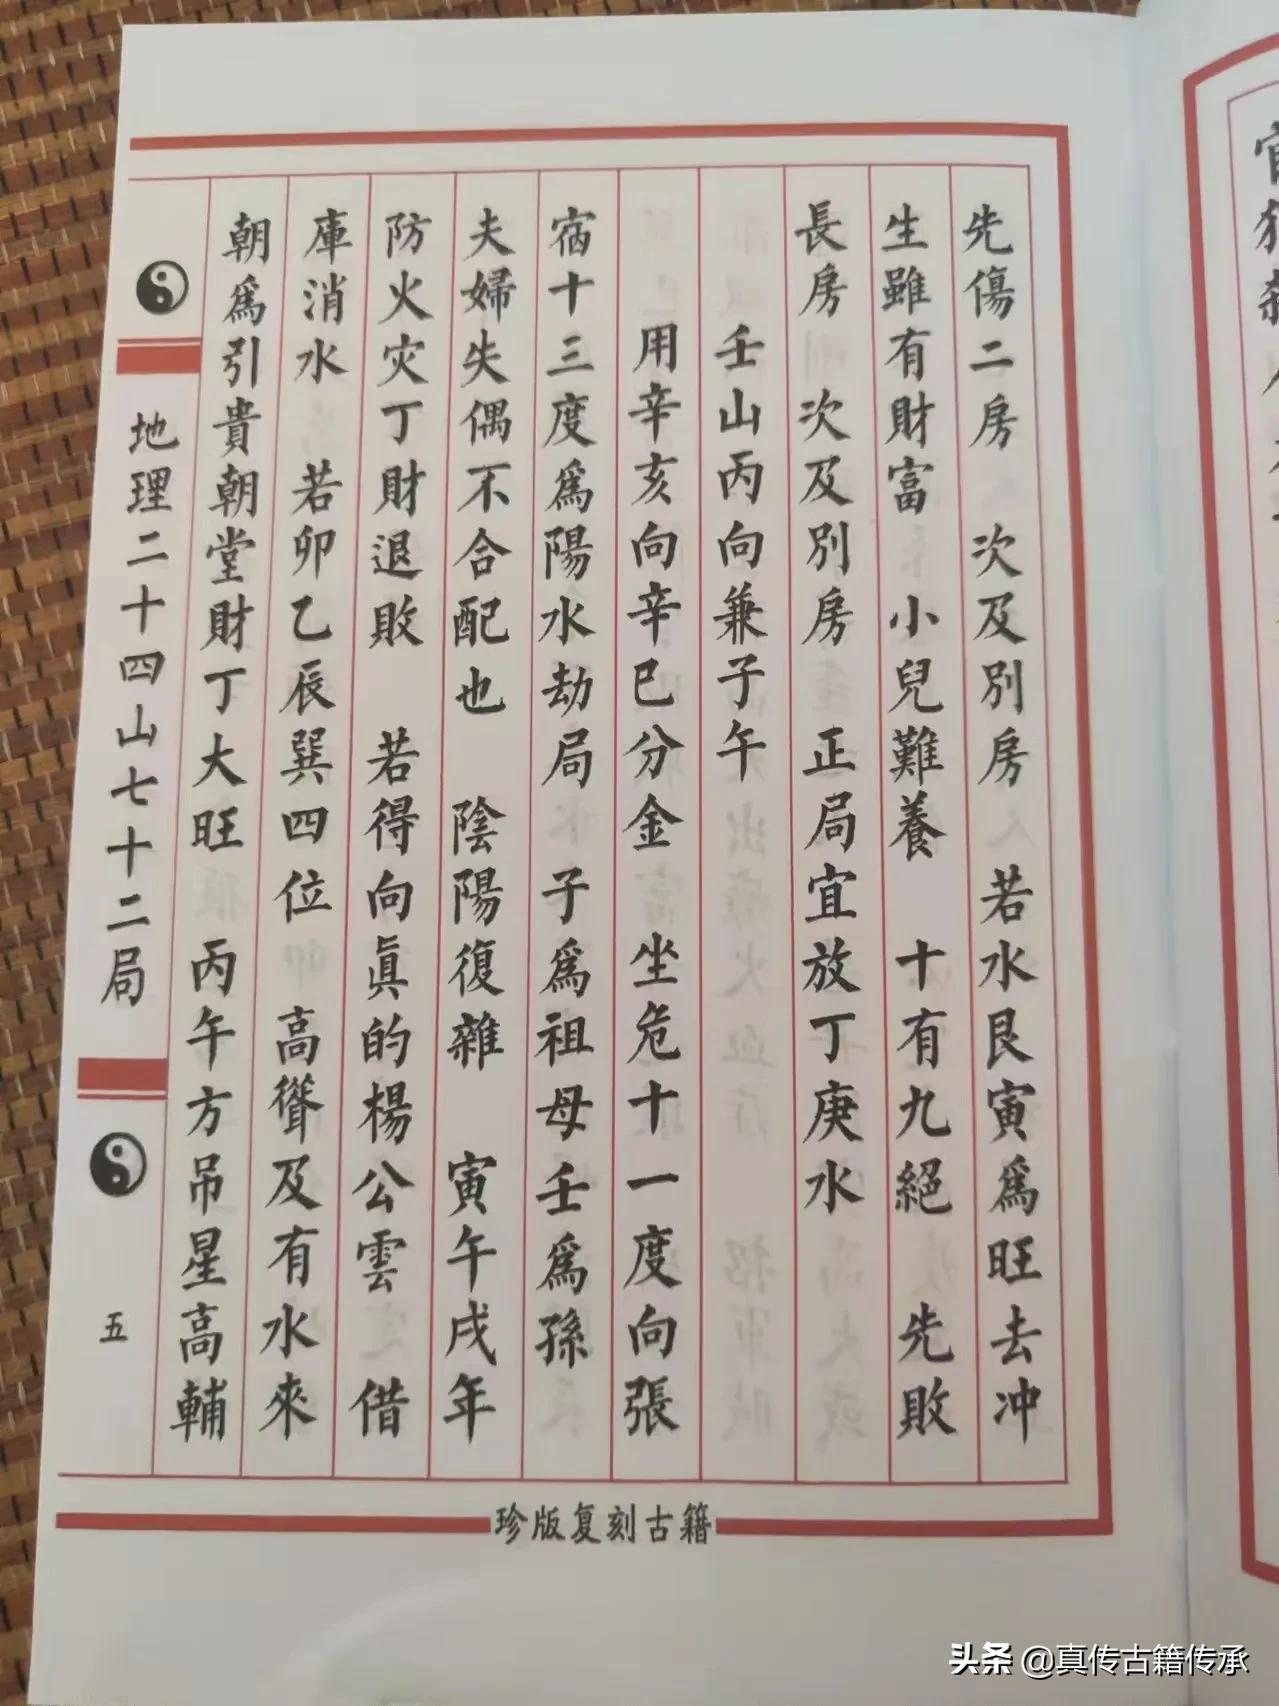 先傷二房　次及別房　若水艮寅爲旺去冲
生雖有財富　小兒難養　十有九絕　先敗
長房　次及別房　正局宜放丁庚水
壬山丙向兼子午
用辛亥向辛巳分金　坐危十一度向張
宿十三度爲陽水劫局　子爲祖母壬爲孫
夫婦失偶不合配也　陰陽復雜　寅午戌年
防火灾丁財退敗　若得向眞的楊公雲　借
庫消水　若卯乙辰巽四位　高聳及有水來
朝爲引貴朝堂財丁大旺　丙午方吊星高輔
地理二十四山七十二局
五
珍版复刻古籍
头条 @真传古籍传承